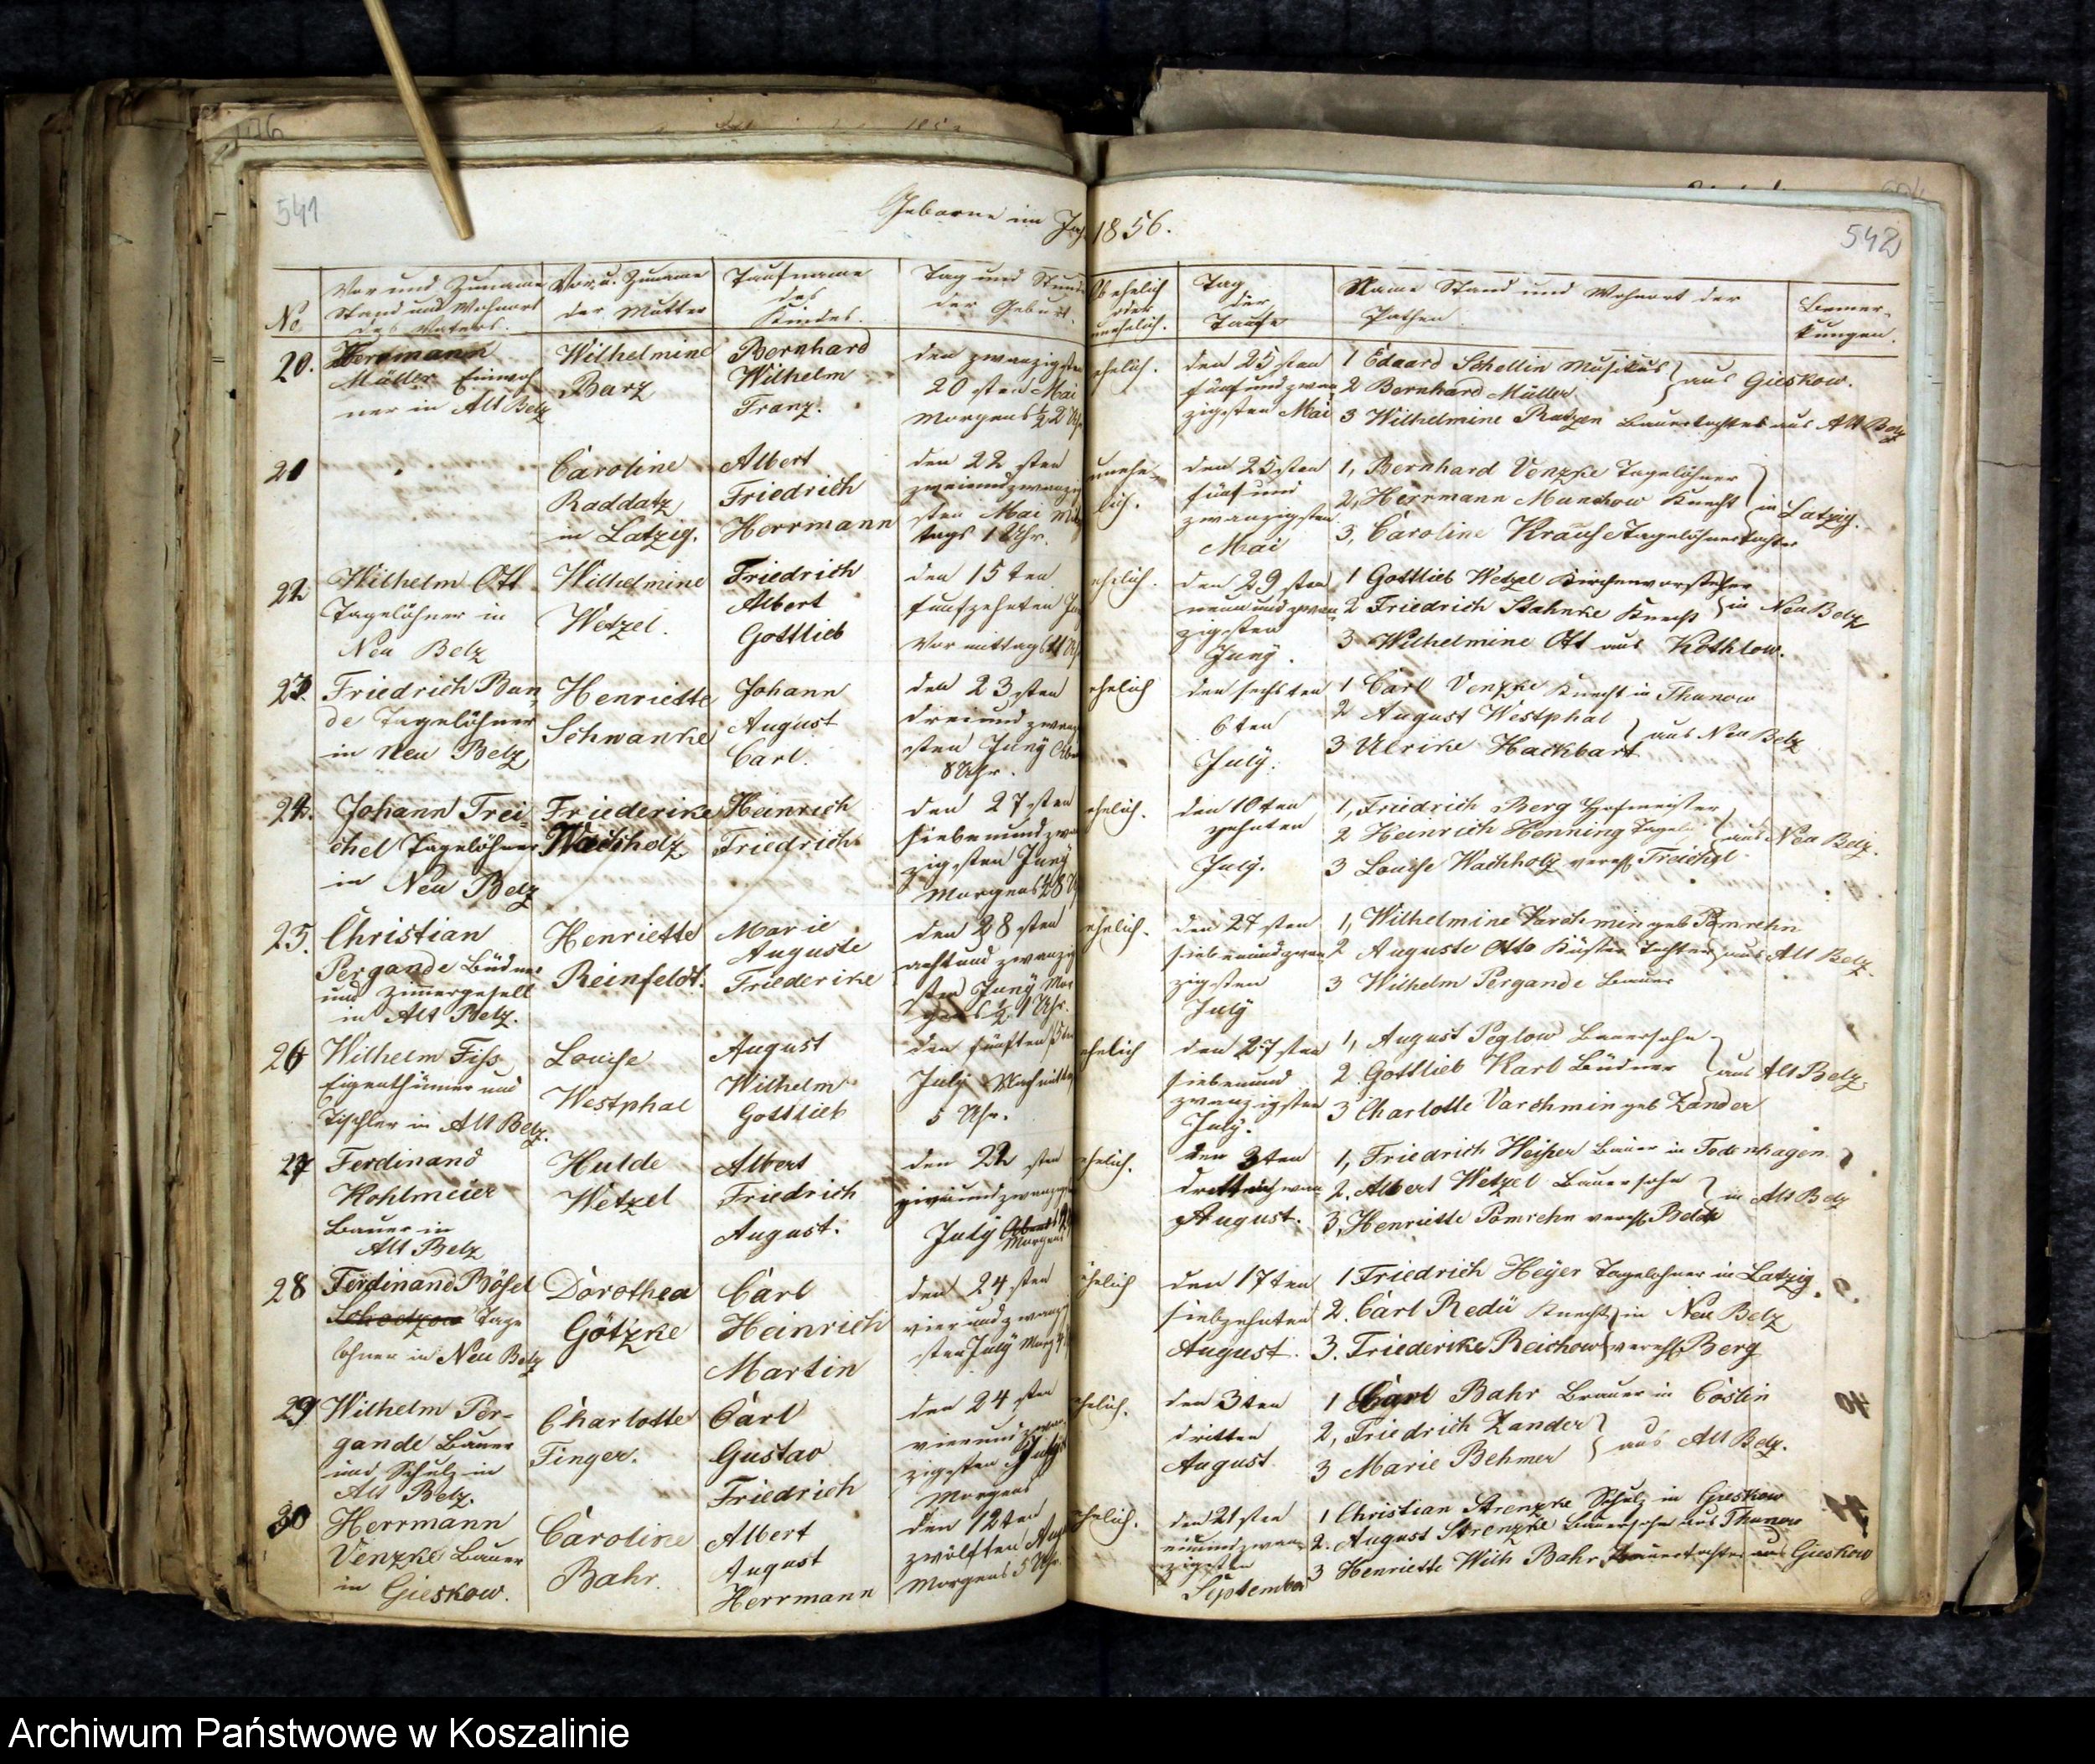 541
Geborne im Jahr 1856.
542
No
Vor und Zuname
Stand und Wohnort
des Vaters.
Vor. u. Zuname
der Mutter
Taufname
des
Kindes.
Tag und Stunde
der Geburt.
Ob ehelich
oder
unehelich.
Tag
der
Taufe
Name Stand und Wohnort der
Pathen
Bemer-
kungen.
20.
Herrmann
Müller Einwoh
ner in Alt Belz
Wilhelmine
Barz
Bernhard
Wilhelm
Franz.
den zwanzigsten
20 sten Mai
Morgens ½2 Uhr
ehelich.
den 25 sten
fünfundzwan
zigsten Mai
1 Eduard Schellin Musikus
2 Bernhard Müller
aus Gieskow.
3 Wilhelmine Ratzen Bauertochter aus Alt Belz
21
Caroline
Raddatz
in Latzig.
Albert
Friedrich
Herrmann
den 22 sten
zweiundzwanzig
sten Mai Mit
tags 1 Uhr.
unehe-
lich.
den 25 sten
fünfund
zwanzigsten
Mai
1, Bernhard Venzke Tagelöhner
2, Herrmann Manchow Knecht
in Latzig.
3, Caroline Krause Tagelöhnertochter
22
Wilhelm Ott
Tagelöhner in
Neu Belz
Wilhelmine
Wetzel.
Friedrich
Albert
Gottlieb
den 15 ten
funfzehnten
Vormittags 11 Uhr
ehelich.
den 29 sten
neunundzwan
zigsten
Juny.
1 Gottlieb Wetzel Kirchenvorsteher
2 Friedrich Stahnke Knecht
in Neu Belz
3 Wilhelmine Ott aus Kothlow.
23.
Friedrich Bun
de Tagelöhner
in Neu Belz
Henriette
Schwanke
Johann
August
Carl.
den 23 sten
dreiundzwanzig
sten Juny
8 Uhr.
ehelich
den sechsten
6 ten
July.
1 Carl Venzke Knecht in Thunow
2 August Westphal
3 Ulrike Hackbart
aus Neu Belz
24.
Johann Trei-
chel Tagelöhner
in Neu Belz
Friederike
Wachholz
Heinrich
Friedrich
den 27 sten
siebenundzwan
zigsten Juny
Morgens ½8 Uhr
ehelich.
den 10 ten
zehnten
July.
1, Friedrich Berg Hofmeister
2 Heinrich Henning Tagel
aus Neu Belz.
3 Louise Wachholz vereh. Treichel
25.
Christian
Pergande Büdner
und Zimmergesell
in Alt Belz.
Henriette
Reinfeldt.
Marie
Auguste
Friederike
den 28 sten
achtundzwanzig
sten Juny Mor
gens ½1 Uhr.
ehelich.
den 27 sten
siebenundzwan
zigsten
July
1, Wilhelmine Varchmin geb Pomrehn
2 Auguste Otto Küster Tochter
aus Alt Belz.
3 Wilhelm Pergande Bauer
26
Wilhelm Fiss
Eigenthümer und
Tischler in Alt Belz.
Louise
Westphal
August
Wilhelm
Gottlieb
den fünften 5 ten
July Nachmittag
5 Uhr.
ehelich
den 27 sten
siebenund
zwanzigsten
July.
1, August Peglow Bauersohn
2. Gottlieb Karl Büdner
aus Alt Belz.
3 Charlotte Varchmin geb Zander
27
Ferdinand
Kohlmeier
Bauer in
Alt Belz
Hulde
Wetzel
Albert
Friedrich
August.
den 22 sten
zweiundzwanzigsten
July
Morgens
ehelich.
den 3 ten
August.
1, Friedrich Heiser Bauer in Todenhagen
2. Albert Wetzel Bauersohn
in Alt Belz
3, Henriette Pomrehn vereh.
28
Ferdinand Bösel
Tage
löhner in Neu Belz
Dorothea
Götzke
Carl
Heinrich
Martin
den 24 sten
vierundzwanzig
sten July Morg
ehelich
den 17 ten
siebzehnten
August.
1 Friedrich Heyer Tagelöhner in Latzig.
2. Carl Redü Knecht in Neu Belz
3. Friederike Reichow vereh. Berg
29
Wilhelm Per-
gande Bauer
und Schulz in
Alt Belz.
Charlotte
Finger.
Carl
Gustav
Friedrich
den 24 sten
vierundzwan
zigsten July
Morgens
ehelich.
den 3 ten
dritten
August
1 Carl Bahr Brauer in Cöslin
2, Friedrich Zander
3 Marie Behmer
aus Alt Belz.
30
Herrmann
Venzke Bauer
in Gieskow.
Caroline
Bahr.
Albert
August
Herrmann
den 12 ten
zwölften Aug
Morgens 5 Uhr.
ehelich.
den 21 sten
einundzwan
zigsten
September
1 Christian Strenzke Schulz in Gieskow
2. August Strenzke Bauersohn aus Thunow
3 Henriette Wilh Bahr Bauertochter aus Gieskow
Archiwum Państwowe w Koszalinie